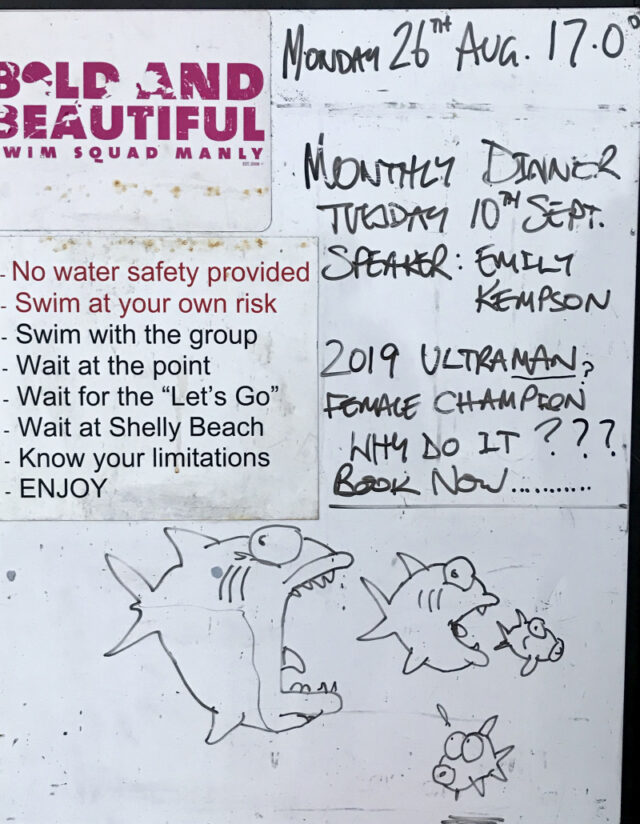 BOLD AND
BEAUTIFUL
SWIM SQUAD MANLY
MONDAY 26TH AUG. 17.0°
MONTHLY DINNER
TUESDAY 10TH SEPT.
SPEAKER: EMILY
KEMPSON
2019 ULTRAMAN?
FEMALE CHAMPION
WHY DO IT ???
BOOK NOW...........
- No water safety provided
- Swim at your own risk
- Swim with the group
- Wait at the point
- Wait for the “Let’s Go”
- Wait at Shelly Beach
- Know your limitations
- ENJOY